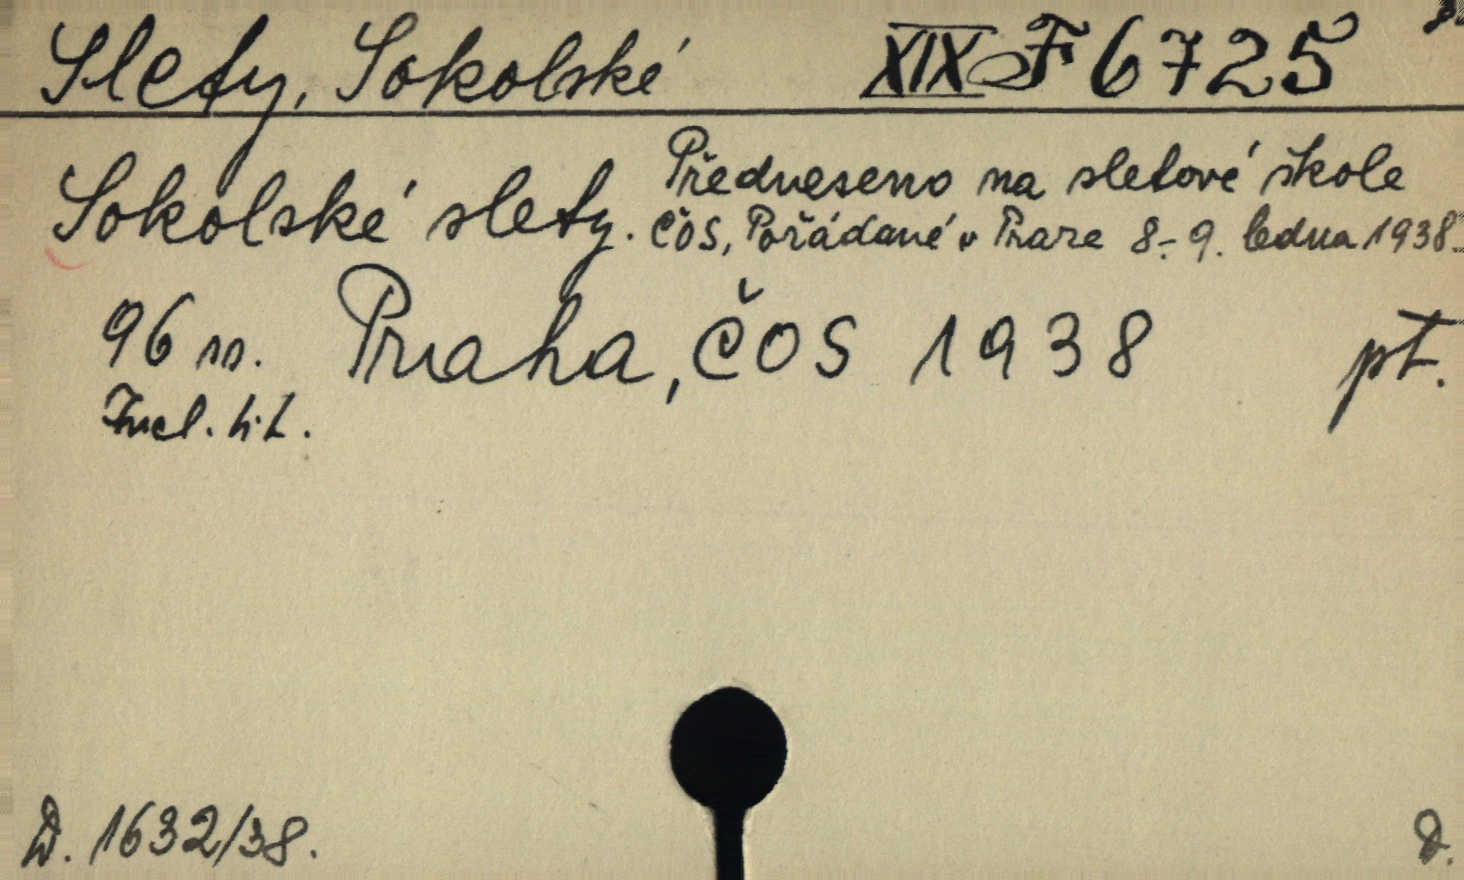 Slety, Sokolské XIX F 6725
Sokolské slety. Předneseno na sletové škole
ČOS, Pořádané v Praze 8.-9. ledna 1938.
96 ss. Praha, ČOS 1938 pt.
Incl. tit.
D. 1632/38. D.